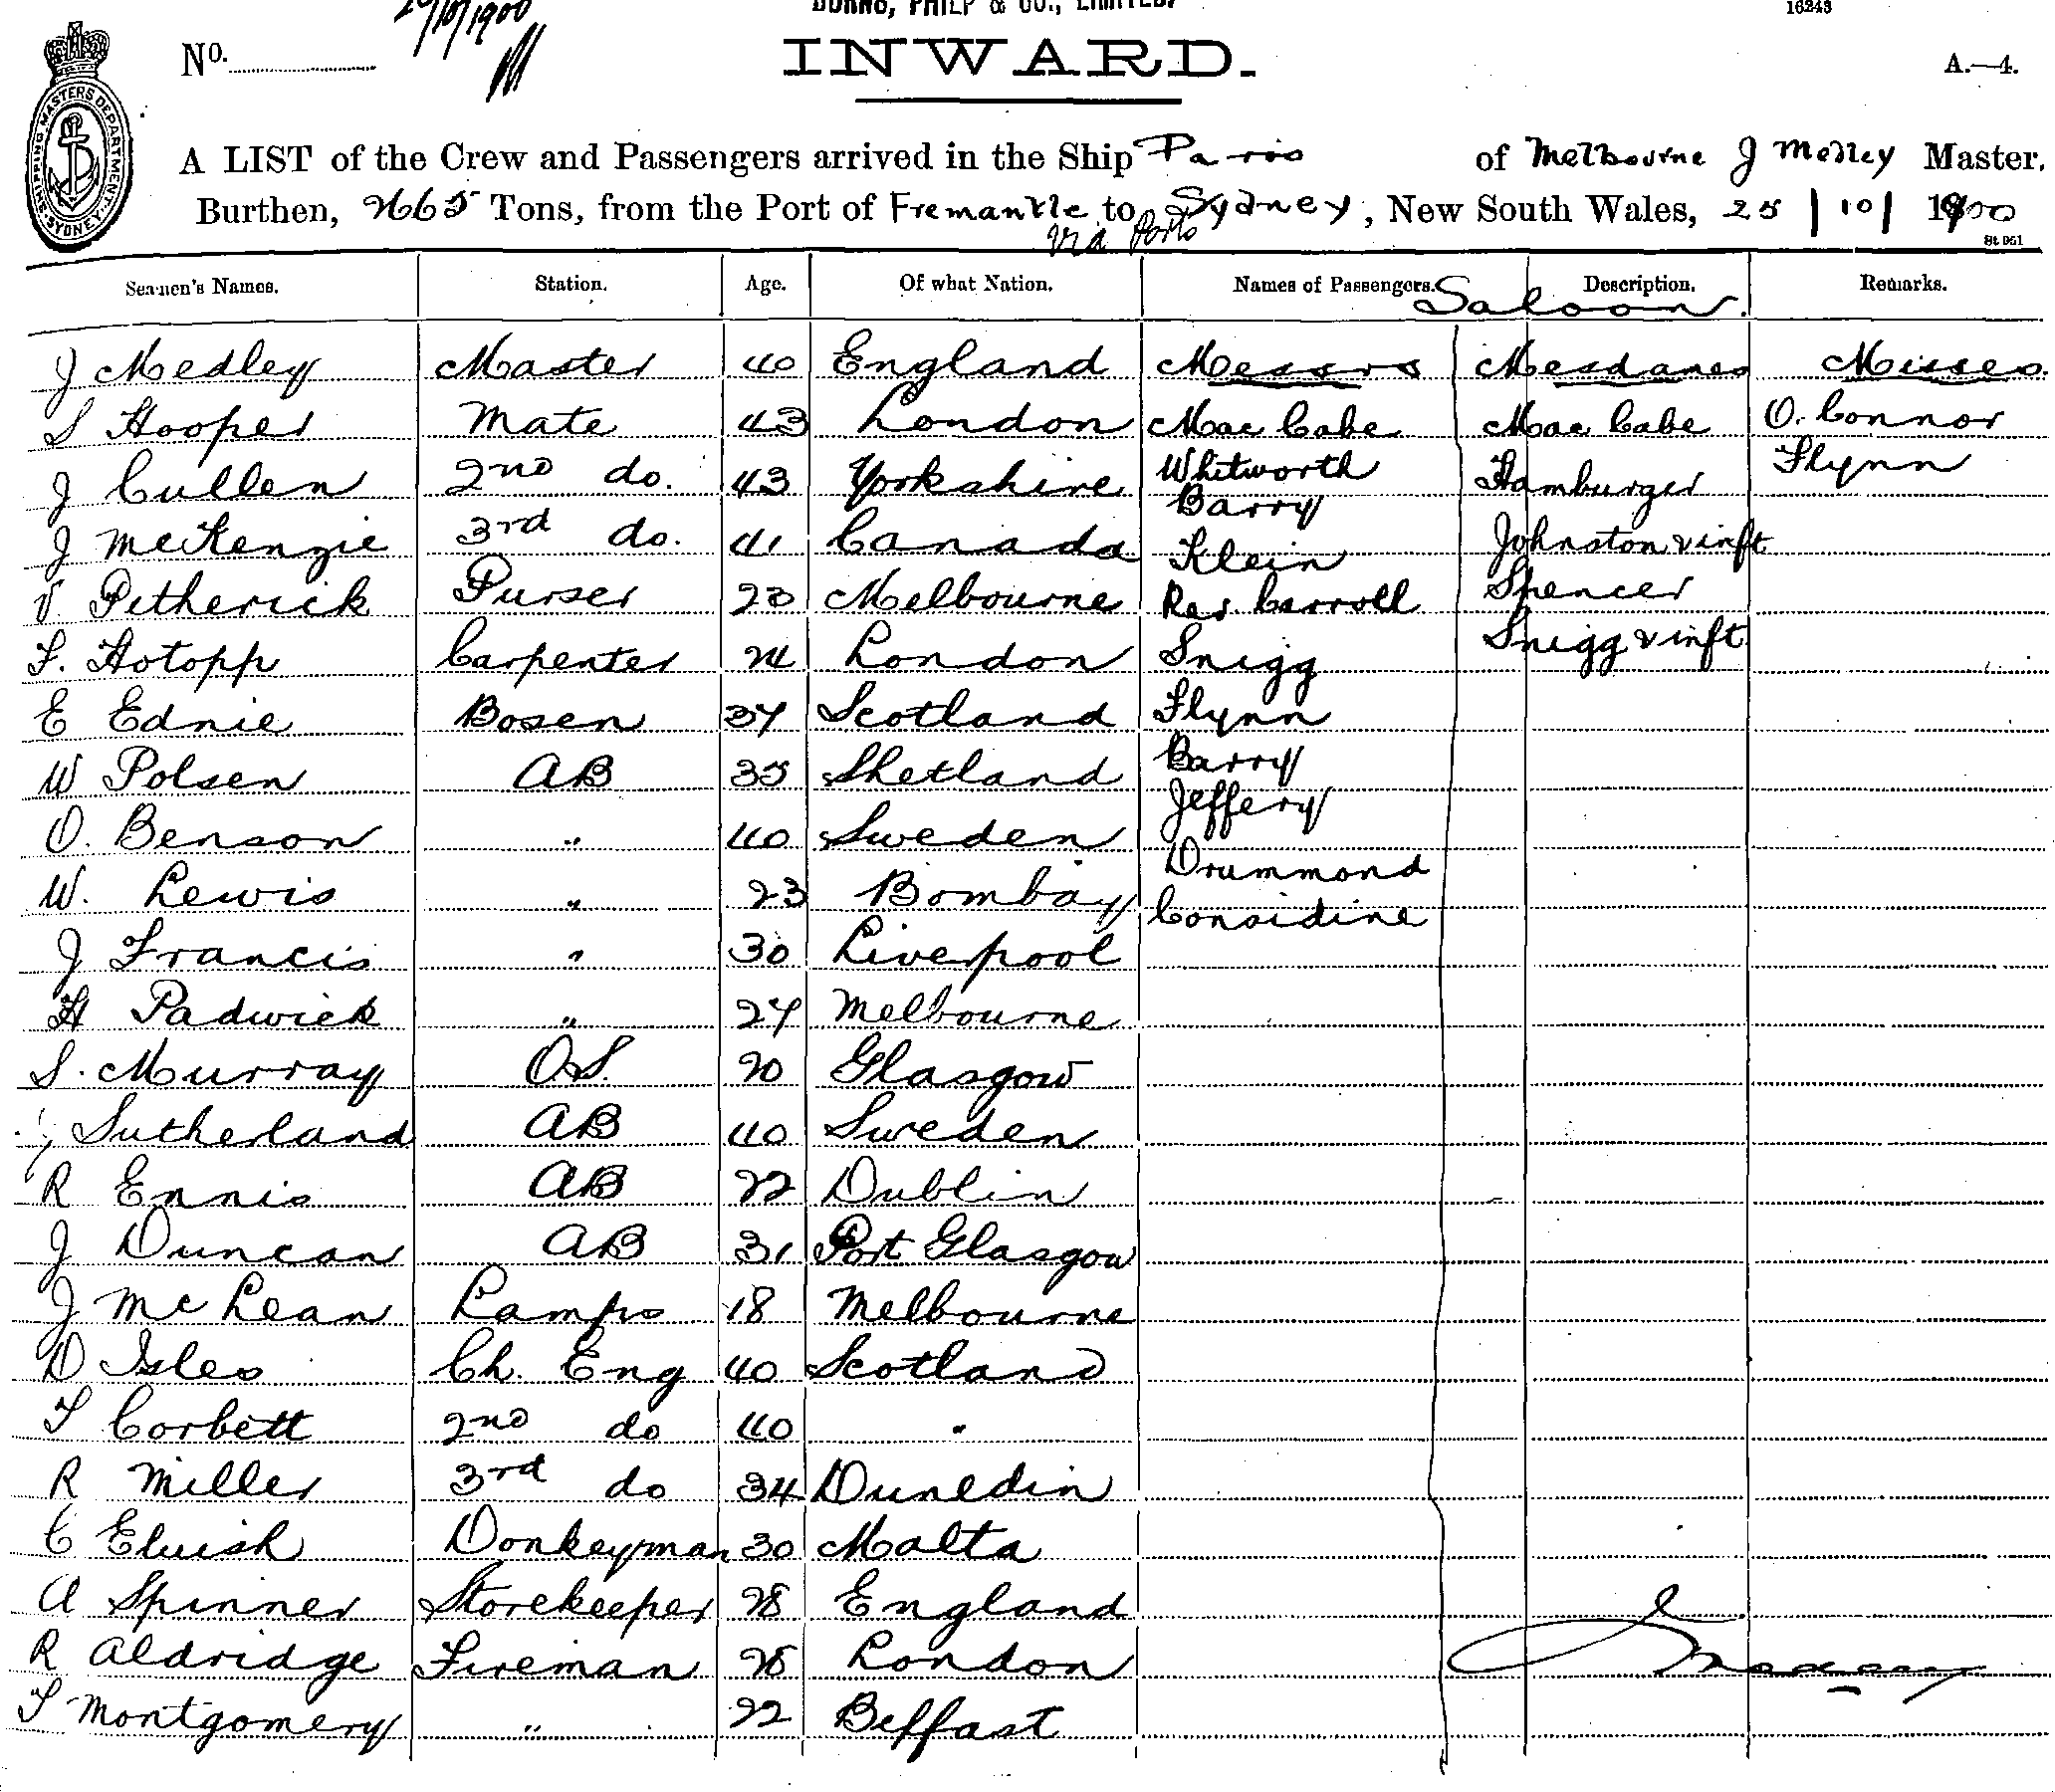 BURNS, PHILP & CO., LIMITED.
16243
/10/1900
No.
INWARD.
A.—4.
SHIPPING MASTERS DEPARTMENT
SYDNEY
A LIST of the Crew and Passengers arrived in the Ship Paroo of Melbourne J Medley Master.
Burthen, 2665 Tons, from the Port of Fremantle to Sydney, New South Wales, 25 / 10 / 1900
Via Ports
St 961
Seamen's Names. Station. Age. Of what Nation. Names of Passengers. Description. Remarks.
Saloon.
J Medley Master 40 England Messrs Mesdames Misses
S Hooper Mate 43 London Mac Cabe Mac Cabe O. Connor
J Cullen 2nd do. 43 Yorkshire Whitworth Hamburger Flynn
Barry
J McKenzie 3rd do. 41 Canada Klein Johnston & inft
V. Petherick Purser 23 Melbourne Rev. Carroll Spencer
F. Hotopp Carpenter 24 London Snigg Snigg & inft
E Ednie Bosen 37 Scotland Flynn
W Polsen AB 35 Shetland Barry
Jeffery
O. Benson " 40 Sweden
Drummond
W. Lewis " 23 Bombay Considine
J Francis " 30 Liverpool
H Padwick " 27 Melbourne
S. Murray O.S. 20 Glasgow
Sutherland AB 40 Sweden
R Ennis AB 22 Dublin
J Duncan AB 31 Port Glasgow
J McLean Lamps 18 Melbourne
D Isles Ch. Eng 40 Scotland
T Corbett 2nd do 40 "
R Miller 3rd do 34 Dunedin
C Eluish Donkeyman 30 Malta
A Spinner Storekeeper 28 England
R Aldridge Fireman 28 London
T Montgomery " 22 Belfast